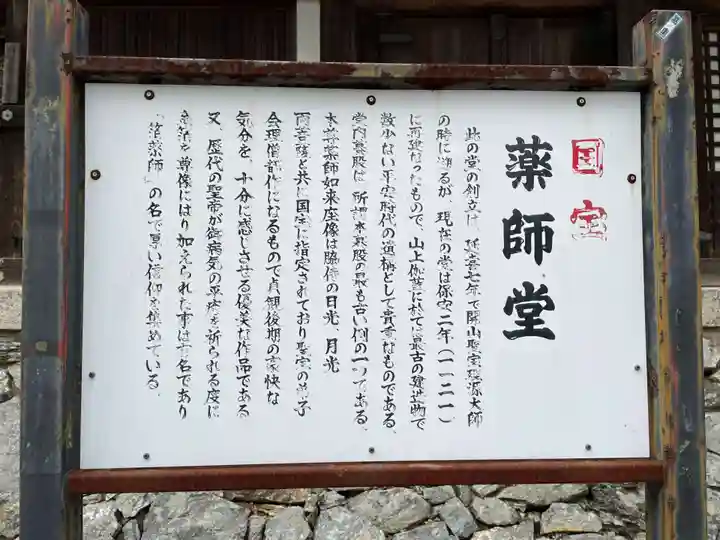 国宝
薬師堂
此の堂の創立は、延喜七年で開山聖宝理源大師
の時に溯るが、現在の堂は保安二年(一一二一)
に再建なったもので、山上伽藍に於ては最古の建造物で
数少ない平安時代の遺構として貴重なものである。
堂内蟇股は、所謂本蟇股の最も古い例の一つである。
本尊薬師如来座像は脇侍の日光、月光
両菩薩と共に国宝に指定されており聖宝の弟子
会理僧都作になるもので貞観後期の豪快な
気分を、十分に感じさせる優美な作品である
又、歴代の聖帝が御病気の平癒を祈られる度に
金箔を尊像にはり加えられた事は有名であり
「箔薬師」の名で厚い信仰を集めている。